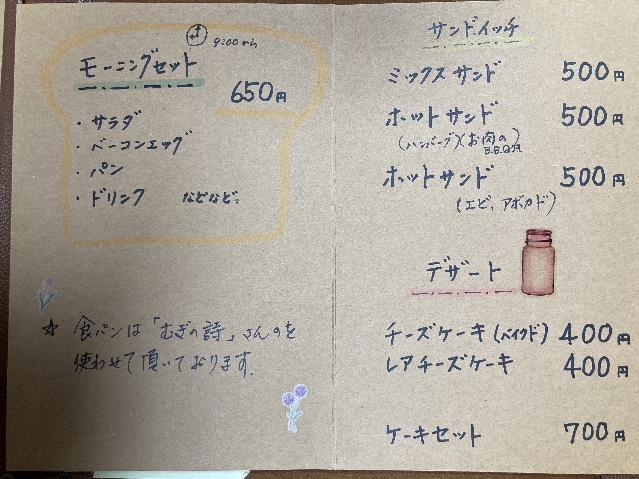 9:00から
モーニングセット
650円
・サラダ
・ベーコンエッグ
・パン
・ドリンク などなど、
☆ 食パンは「むぎの詩」さんのを
使わせて頂いております.
サンドイッチ
ミックスサンド 500円
ホットサンド 500円
(ハンバーグ)(お肉の)
B.B.Q
ホットサンド 500円
(エビ、アボカド)
デザート
チーズケーキ(ベイクド) 400円
レアチーズケーキ 400円
ケーキセット 700円